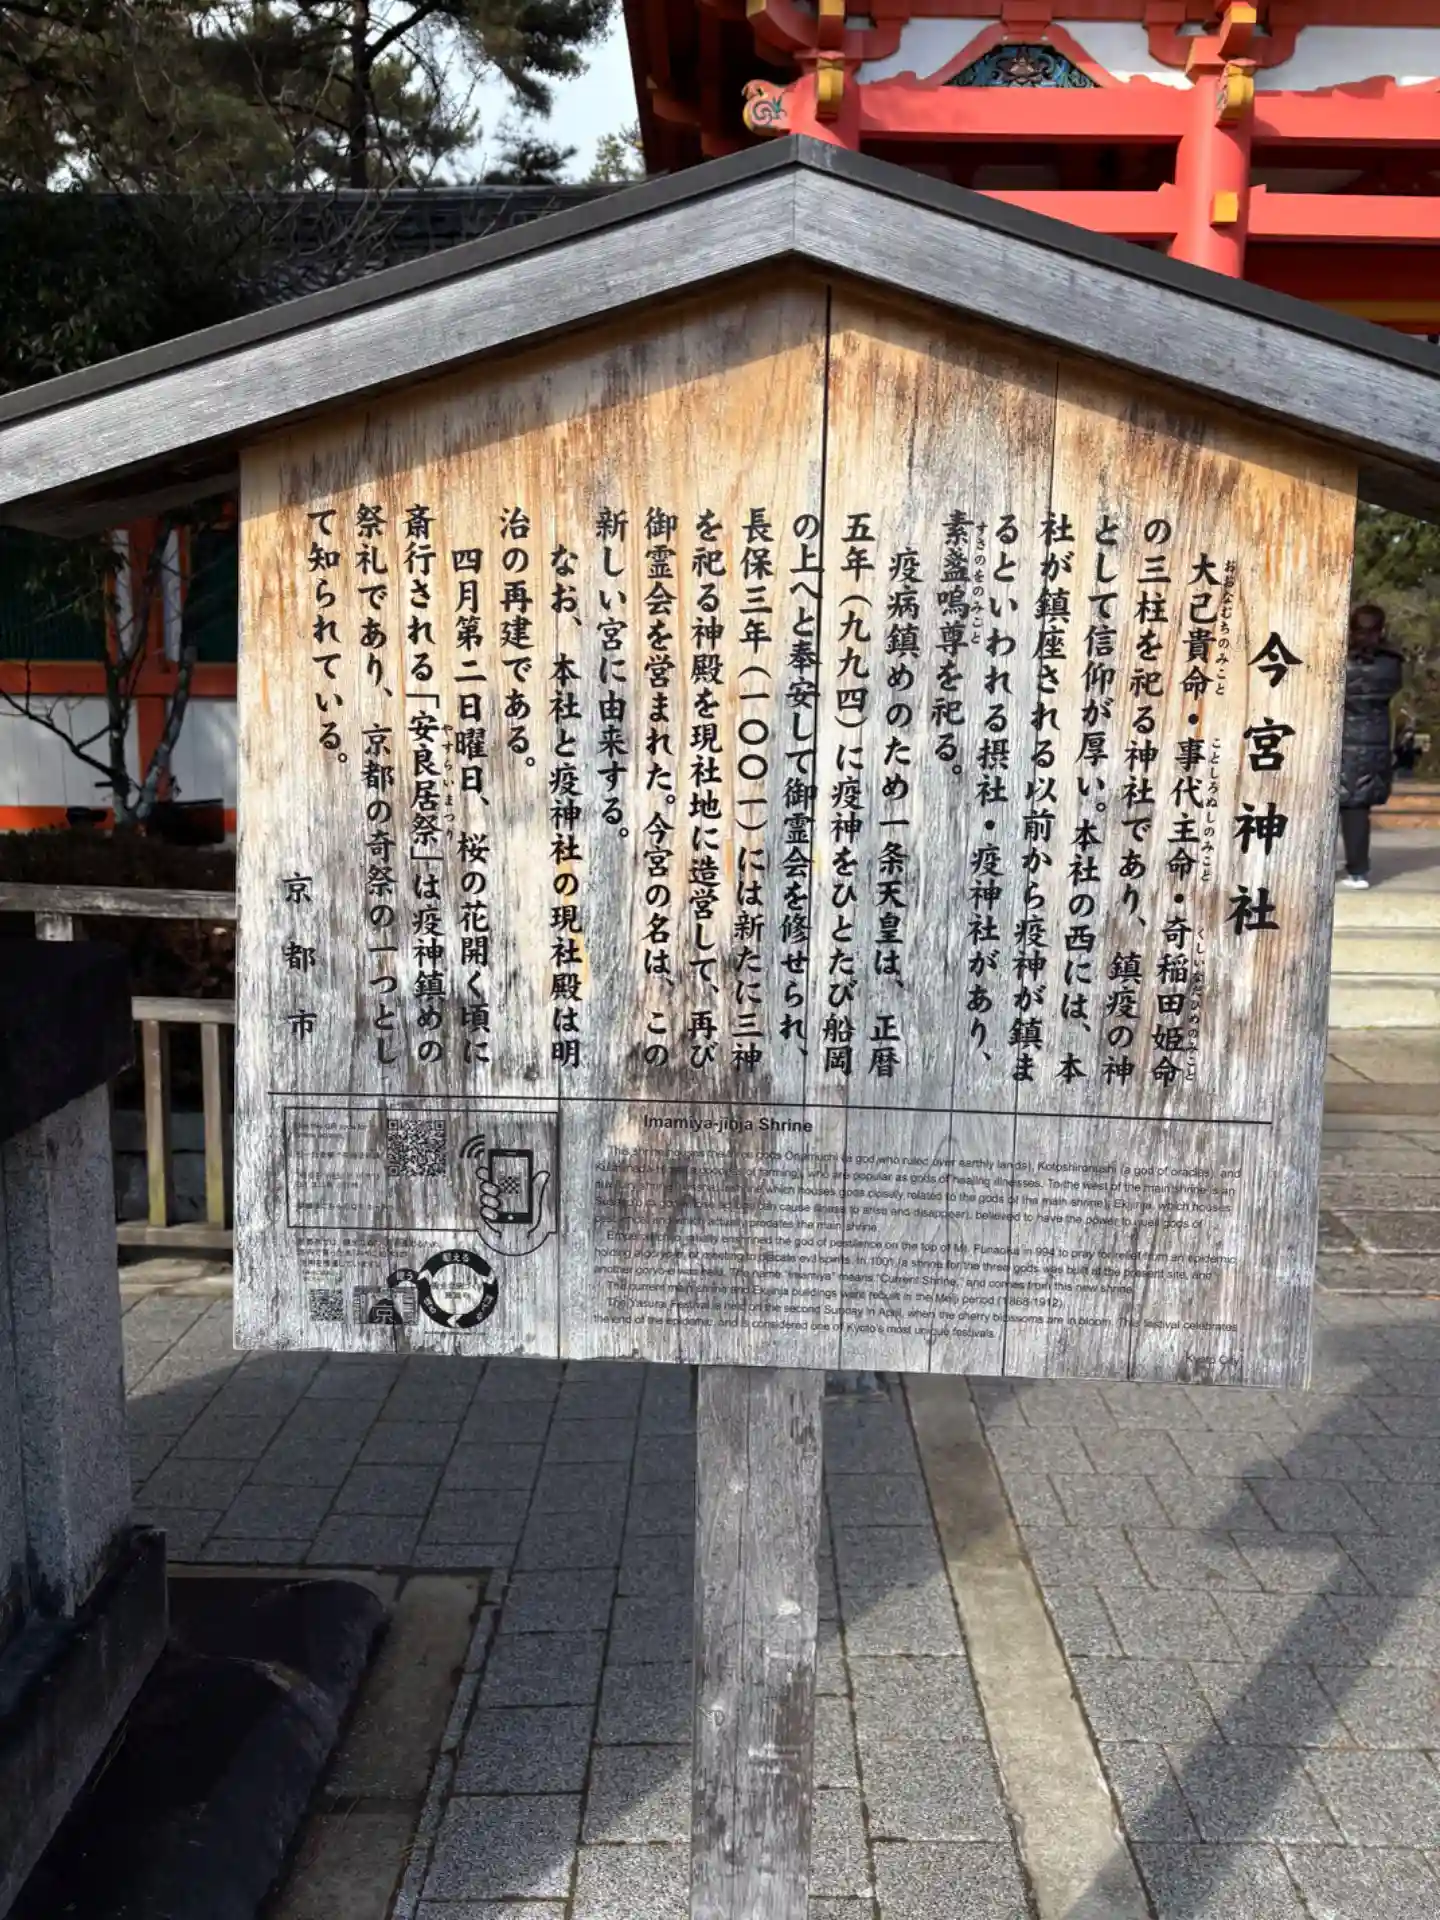 今宮神社
大己貴命・事代主命・奇稲田姫命
おおなむちのみこと
ことしろぬしのみこと
くしいなだひめのみこと
の三柱を祀る神社であり、鎮疫の神
として信仰が厚い。本社の西には、本
社が鎮座される以前から疫神が鎮ま
るといわれる摂社・疫神社があり、
素盞嗚尊を祀る。
すさのをのみこと
疫病鎮めのため一条天皇は、正暦
五年(九九四)に疫神をひとたび船岡
の上へと奉安して御霊会を修せられ、
長保三年(一〇〇一)には新たに三神
を祀る神殿を現社地に造営して、再び
御霊会を営まれた。今宮の名は、この
新しい宮に由来する。
なお、本社と疫神社の現社殿は明
治の再建である。
四月第二日曜日、桜の花開く頃に
斎行される「安良居祭」は疫神鎮めの
やすらいまつり
祭礼であり、京都の奇祭の一つとし
て知られている。
京都市
Imamiya-jinja Shrine
This shrine houses the three gods Onamuchi (a god who ruled over earthly lands), Kotoshironushi (a god of oracles), and
(a goddess of farming), who are popular as gods of healing illnesses. To the west of the main shrine is an
which houses gods closely related to the gods of the main shrine), Ekijinja, which houses
can cause illness to arise and disappear), believed to have the power to quell gods of
and which actually predates the main shrine.
enshrined the god of pestilence on the top of Mt. Funaoka in 994 to pray for relief from an epidemic,
holding a goryo-e, or meeting to placate evil spirits. In 1001, a shrine for the three gods was built at the present site, and
another goryo-e was held. The name "Imamiya" means "Current Shrine," and comes from this new shrine.
The current main shrine and Ekijinja buildings were rebuilt in the Meiji period (1868-1912).
The Yasurai Festival is held on the second Sunday in April, when the cherry blossoms are in bloom. This festival celebrates
the end of the epidemic, and is considered one of Kyoto's most unique festivals.
Kyoto City